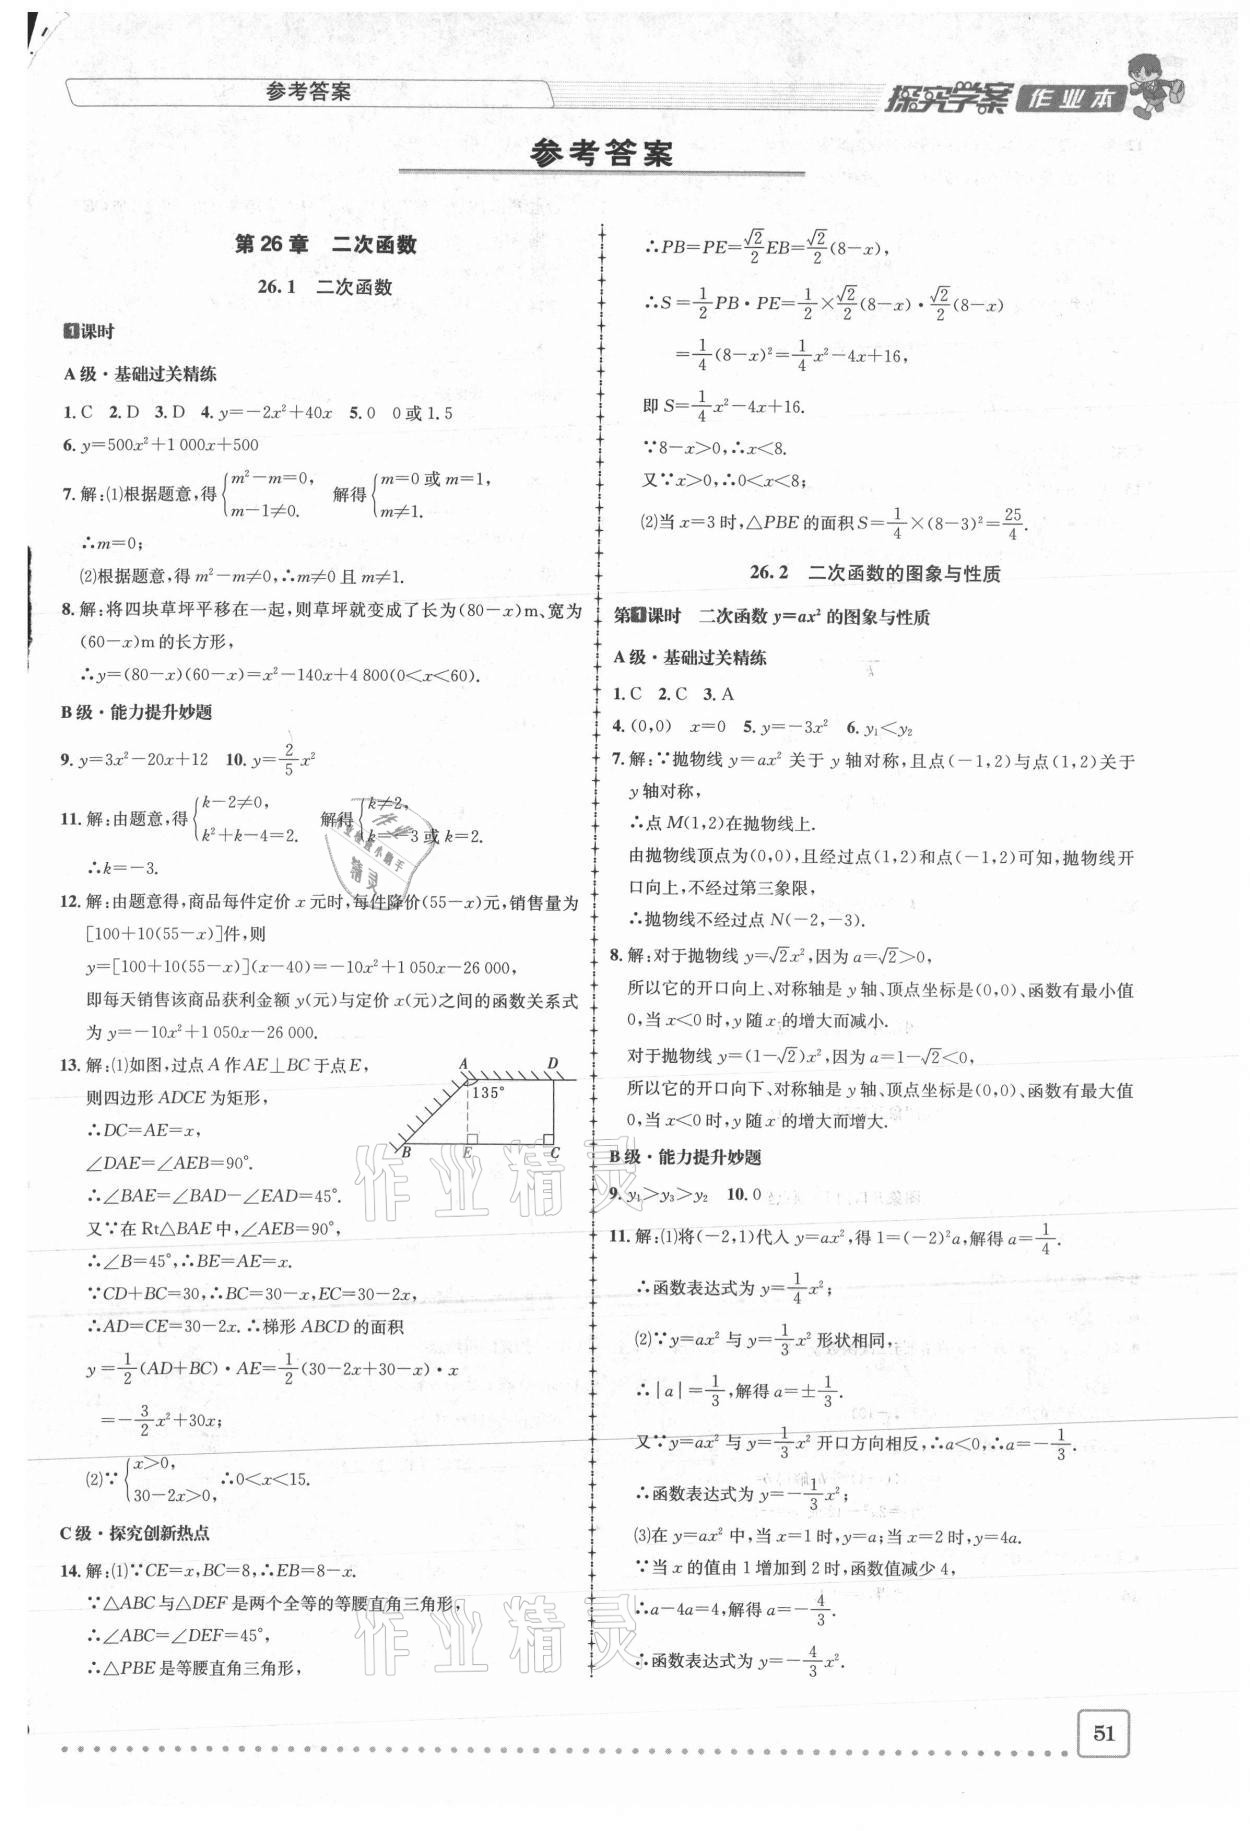 参考答案
探究学案 作业本
参考答案
第26章 二次函数
26.1 二次函数
1课时
A级·基础过关精练
1. C 2. D 3. D 4. y=-2x²+40x 5. 0 0或1.5
6. y=500x²+1 000x+500
7. 解:(1)根据题意,得{m²-m=0, m-1≠0. 解得{m=0或m=1, m≠1.
∴m=0;
(2)根据题意,得m²-m≠0,∴m≠0且m≠1.
8. 解:将四块草坪平移在一起,则草坪就变成了长为(80-x)m、宽为
(60-x)m的长方形,
∴y=(80-x)(60-x)=x²-140x+4 800(0<x<60).
B级·能力提升妙题
9. y=3x²-20x+12 10. y=2/5x²
11. 解:由题意,得{k-2≠0, k²+k-4=2. 解得{k≠2, k=-3或k=2.
∴k=-3.
12. 解:由题意得,商品每件定价x元时,每件降价(55-x)元,销售量为
[100+10(55-x)]件,则
y=[100+10(55-x)](x-40)=-10x²+1 050x-26 000,
即每天销售该商品获利金额y(元)与定价x(元)之间的函数关系式
为y=-10x²+1 050x-26 000.
13. 解:(1)如图,过点A作AE⊥BC于点E,
则四边形ADCE为矩形,
∴DC=AE=x,
∠DAE=∠AEB=90°.
∴∠BAE=∠BAD-∠EAD=45°.
又∵在Rt△BAE中,∠AEB=90°,
∴∠B=45°,∴BE=AE=x.
∵CD+BC=30,∴BC=30-x,EC=30-2x,
∴AD=CE=30-2x.∴梯形ABCD的面积
y=1/2(AD+BC)·AE=1/2(30-2x+30-x)·x
=-3/2x²+30x;
(2)∵{x>0, 30-2x>0, ∴0<x<15.
A D
135°
B E C
C级·探究创新热点
14. 解:(1)∵CE=x,BC=8,∴EB=8-x.
∵△ABC与△DEF是两个全等的等腰直角三角形,
∴∠ABC=∠DEF=45°,
∴△PBE是等腰直角三角形,
∴PB=PE=√2/2EB=√2/2(8-x),
∴S=1/2PB·PE=1/2×√2/2(8-x)·√2/2(8-x)
=1/4(8-x)²=1/4x²-4x+16,
即S=1/4x²-4x+16.
∵8-x>0,∴x<8.
又∵x>0,∴0<x<8;
(2)当x=3时,△PBE的面积S=1/4×(8-3)²=25/4.
26.2 二次函数的图象与性质
第1课时 二次函数y=ax²的图象与性质
A级·基础过关精练
1. C 2. C 3. A
4. (0,0) x=0 5. y=-3x² 6. y₁<y₂
7. 解:∵抛物线y=ax²关于y轴对称,且点(-1,2)与点(1,2)关于
y轴对称,
∴点M(1,2)在抛物线上.
由抛物线顶点为(0,0),且经过点(1,2)和点(-1,2)可知,抛物线开
口向上,不经过第三象限,
∴抛物线不经过点N(-2,-3).
8. 解:对于抛物线y=√2x²,因为a=√2>0,
所以它的开口向上、对称轴是y轴、顶点坐标是(0,0)、函数有最小值
0,当x<0时,y随x的增大而减小.
对于抛物线y=(1-√2)x²,因为a=1-√2<0,
所以它的开口向下、对称轴是y轴、顶点坐标是(0,0)、函数有最大值
0,当x<0时,y随x的增大而增大.
B级·能力提升妙题
9. y₁>y₃>y₂ 10. 0
11. 解:(1)将(-2,1)代入y=ax²,得1=(-2)²a,解得a=1/4.
∴函数表达式为y=1/4x²;
(2)∵y=ax²与y=1/3x²形状相同,
∴|a|=1/3,解得a=±1/3.
又∵y=ax²与y=1/3x²开口方向相反,∴a<0,∴a=-1/3.
∴函数表达式为y=-1/3x²;
(3)在y=ax²中,当x=1时,y=a;当x=2时,y=4a.
∵当x的值由1增加到2时,函数值减少4,
∴a-4a=4,解得a=-4/3.
∴函数表达式为y=-4/3x².
作业精灵
作业精灵
51